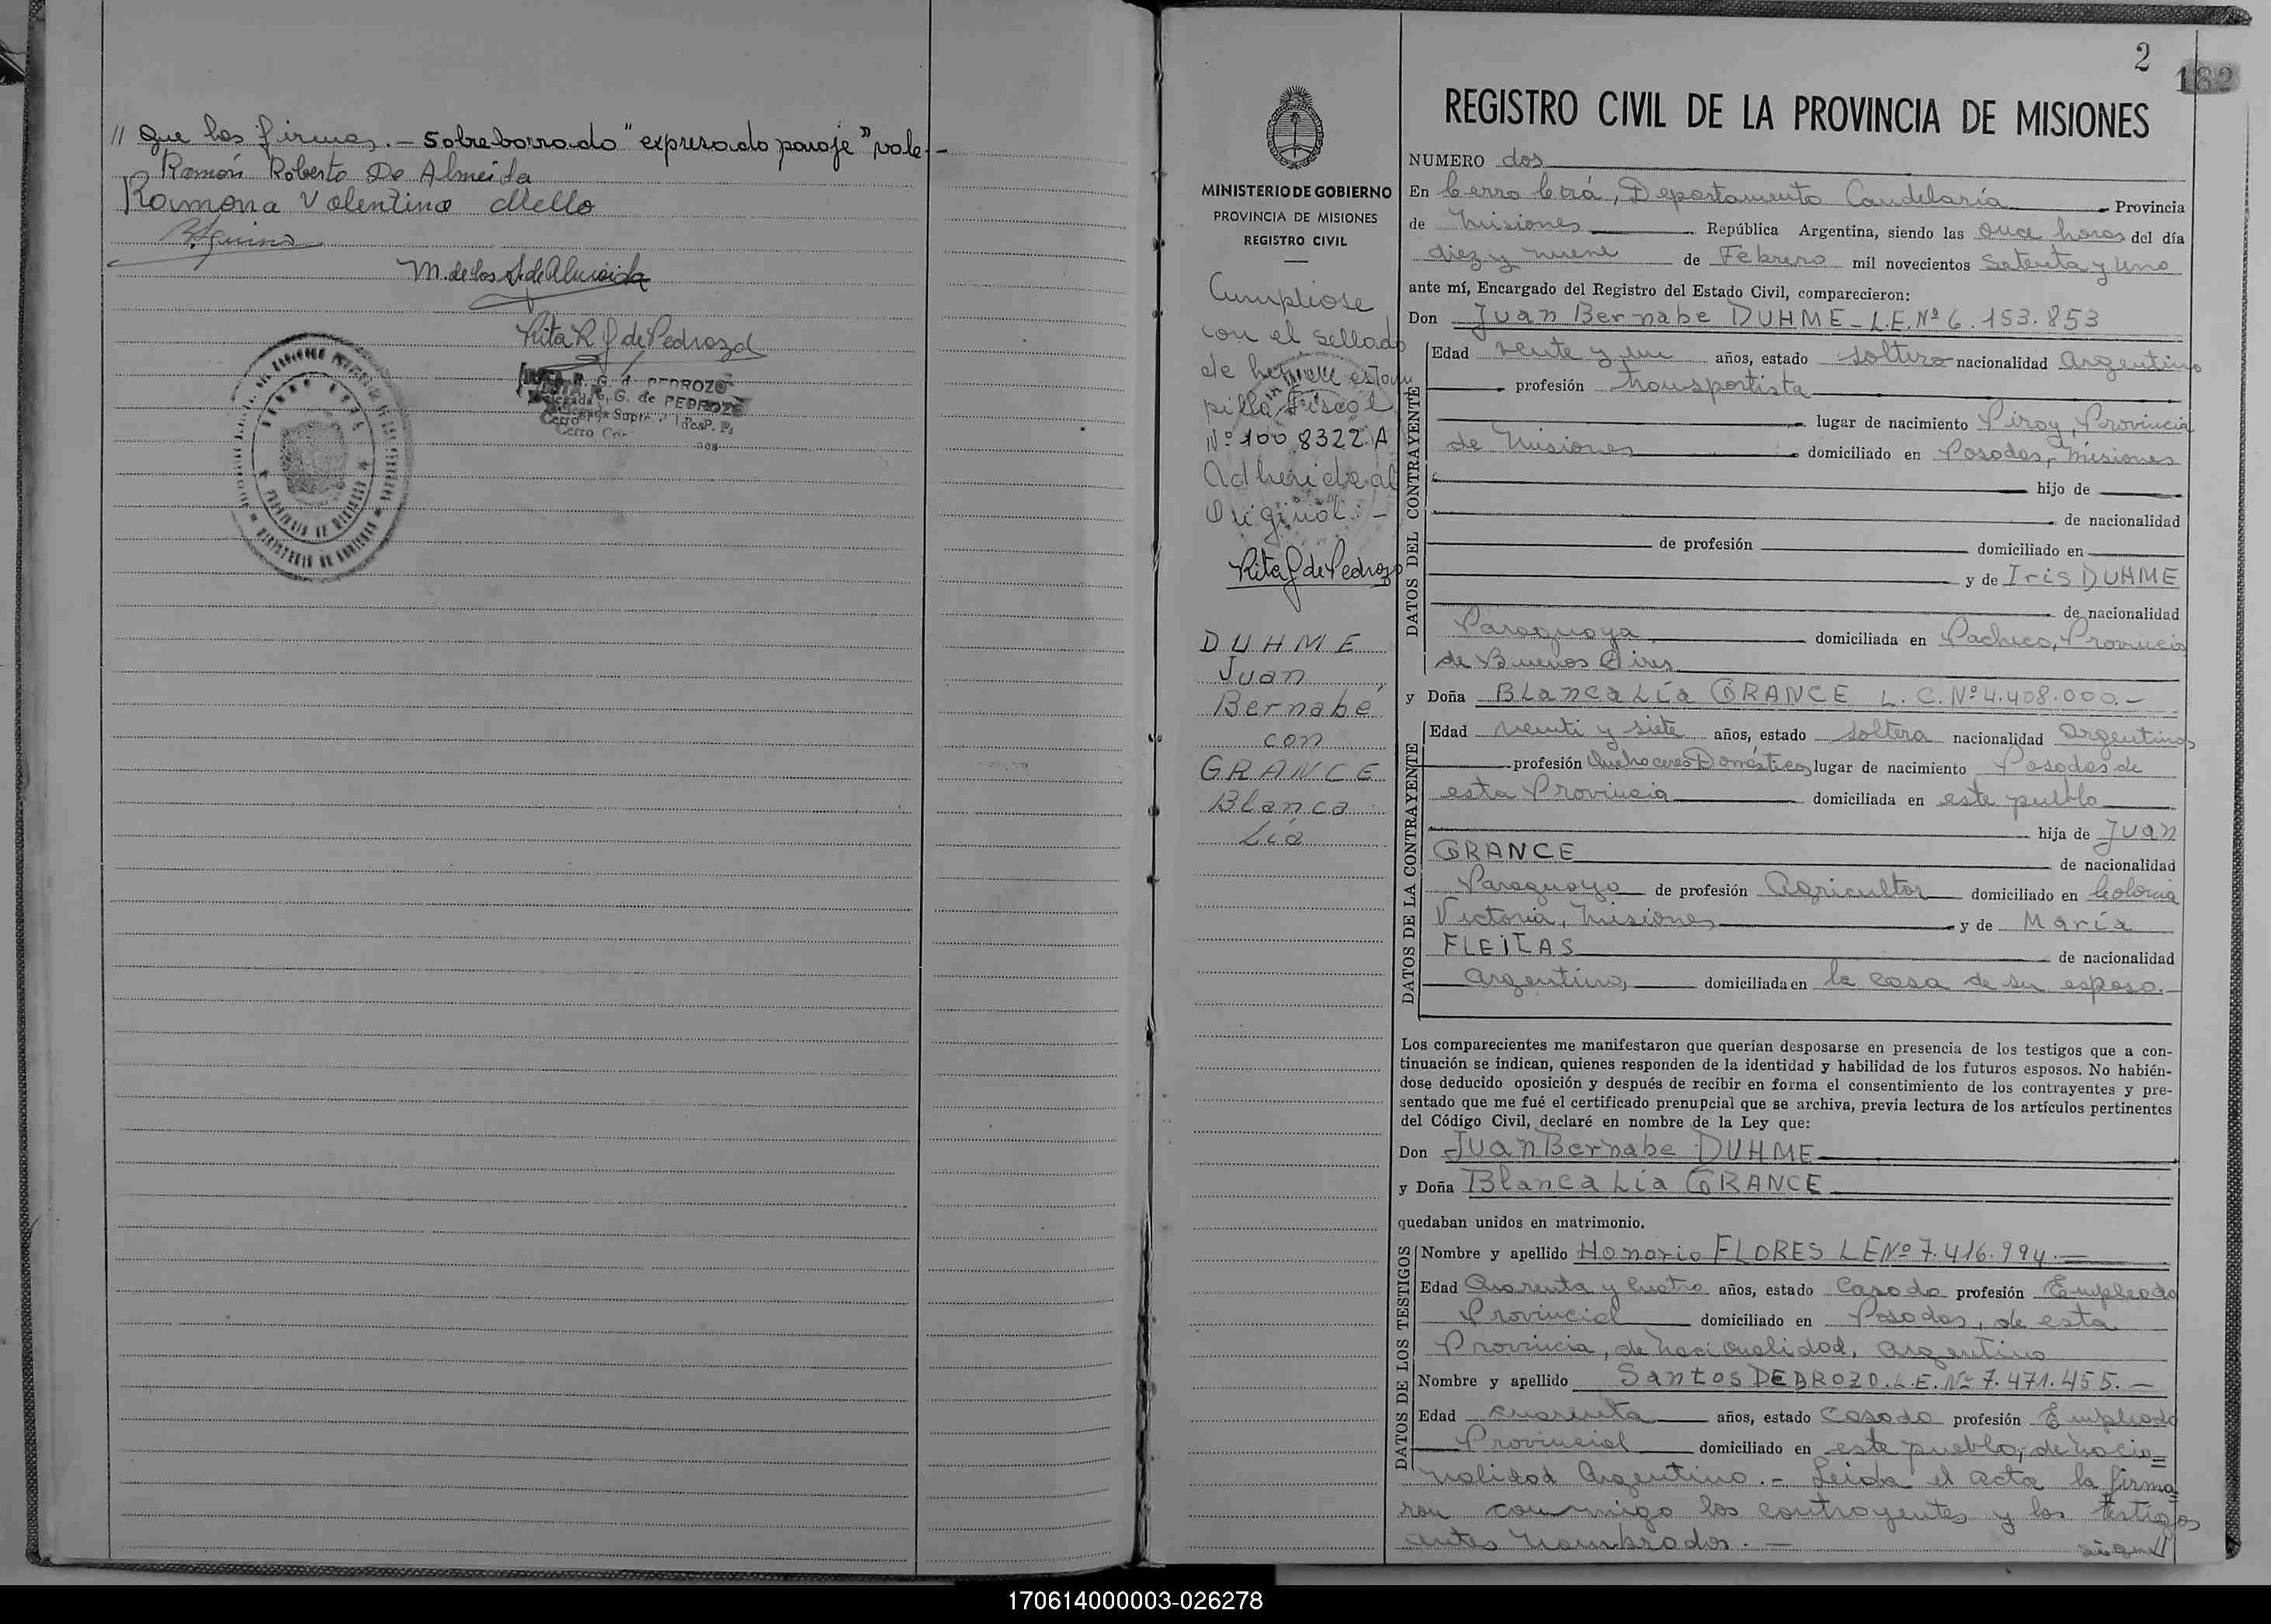 // que los firmas.- Sobreborrado "expresado paraje" vale.-
Ramón Roberto De Almeida
Ramona Valentina Mello
M. de los S. de Almeida
Rita R G de Pedrozo
R. G. de PEDROZO
G. de PEDROZO
Cerro
2
182
REGISTRO CIVIL DE LA PROVINCIA DE MISIONES
MINISTERIO DE GOBIERNO
PROVINCIA DE MISIONES
REGISTRO CIVIL
Cumpliose
con el sellado
de
pilla fiscal
Nº 1008322 A
Adherida al
Original.-
Rita G de Pedrozo
DUHME
Juan
Bernabé
con
GRANCE
Blanca
Lia
NUMERO dos
En Cerro Corá, Departamento Candelaria Provincia
de Misiones República Argentina, siendo las once horas del día
diez y nueve de Febrero mil novecientos Setenta y Uno
ante mí, Encargado del Registro del Estado Civil, comparecieron:
Don Juan Bernabe DUHME - L.E. Nº 6.153.853
DATOS DEL CONTRAYENTE
Edad veinte y un años, estado soltero nacionalidad Argentino
profesión transportista
lugar de nacimiento Piray, Provincia
de Misiones domiciliado en Posadas, Misiones
hijo de
de nacionalidad
de profesión domiciliado en
y de Iris DUHME
de nacionalidad
Paraguaya domiciliada en Pacheco, Provincia
de Buenos Aires
y Doña Blanca Lía GRANCE L.C. Nº 4.408.000.-
DATOS DE LA CONTRAYENTE
Edad veinti y siete años, estado soltera nacionalidad Argentina
profesión Quehaceres Domésticos lugar de nacimiento Posadas de
esta Provincia domiciliada en este pueblo
hija de Juan
GRANCE de nacionalidad
Paraguayo de profesión Agricultor domiciliado en Colonia
Victoria, Misiones y de María
FLEITAS de nacionalidad
Argentina, domiciliada en la casa de su esposo.-
Los comparecientes me manifestaron que querían desposarse en presencia de los testigos que a con-
tinuación se indican, quienes responden de la identidad y habilidad de los futuros esposos. No habién-
dose deducido oposición y después de recibir en forma el consentimiento de los contrayentes y pre-
sentado que me fué el certificado prenupcial que se archiva, previa lectura de los artículos pertinentes
del Código Civil, declaré en nombre de la Ley que:
Don Juan Bernabe DUHME
y Doña Blanca Lia GRANCE
quedaban unidos en matrimonio.
DATOS DE LOS TESTIGOS
Nombre y apellido Honorio FLORES LE Nº 7.416.994.
Edad Cuarenta y Cuatro años, estado Casado profesión Empleado
Provincial domiciliado en Posadas, de esta
Provincia, de nacionalidad, Argentino
Nombre y apellido Santos PEDROZO. L.E. Nº 7.471.455.-
Edad cuarenta años, estado Casado profesión Empleado
Provincial domiciliado en este pueblo, de nacio=
nalidad Argentino.- Leida el acta la firma=
ron conmigo los contrayentes y los testigos
antes nombrados.- sigue//
170614000003-026278